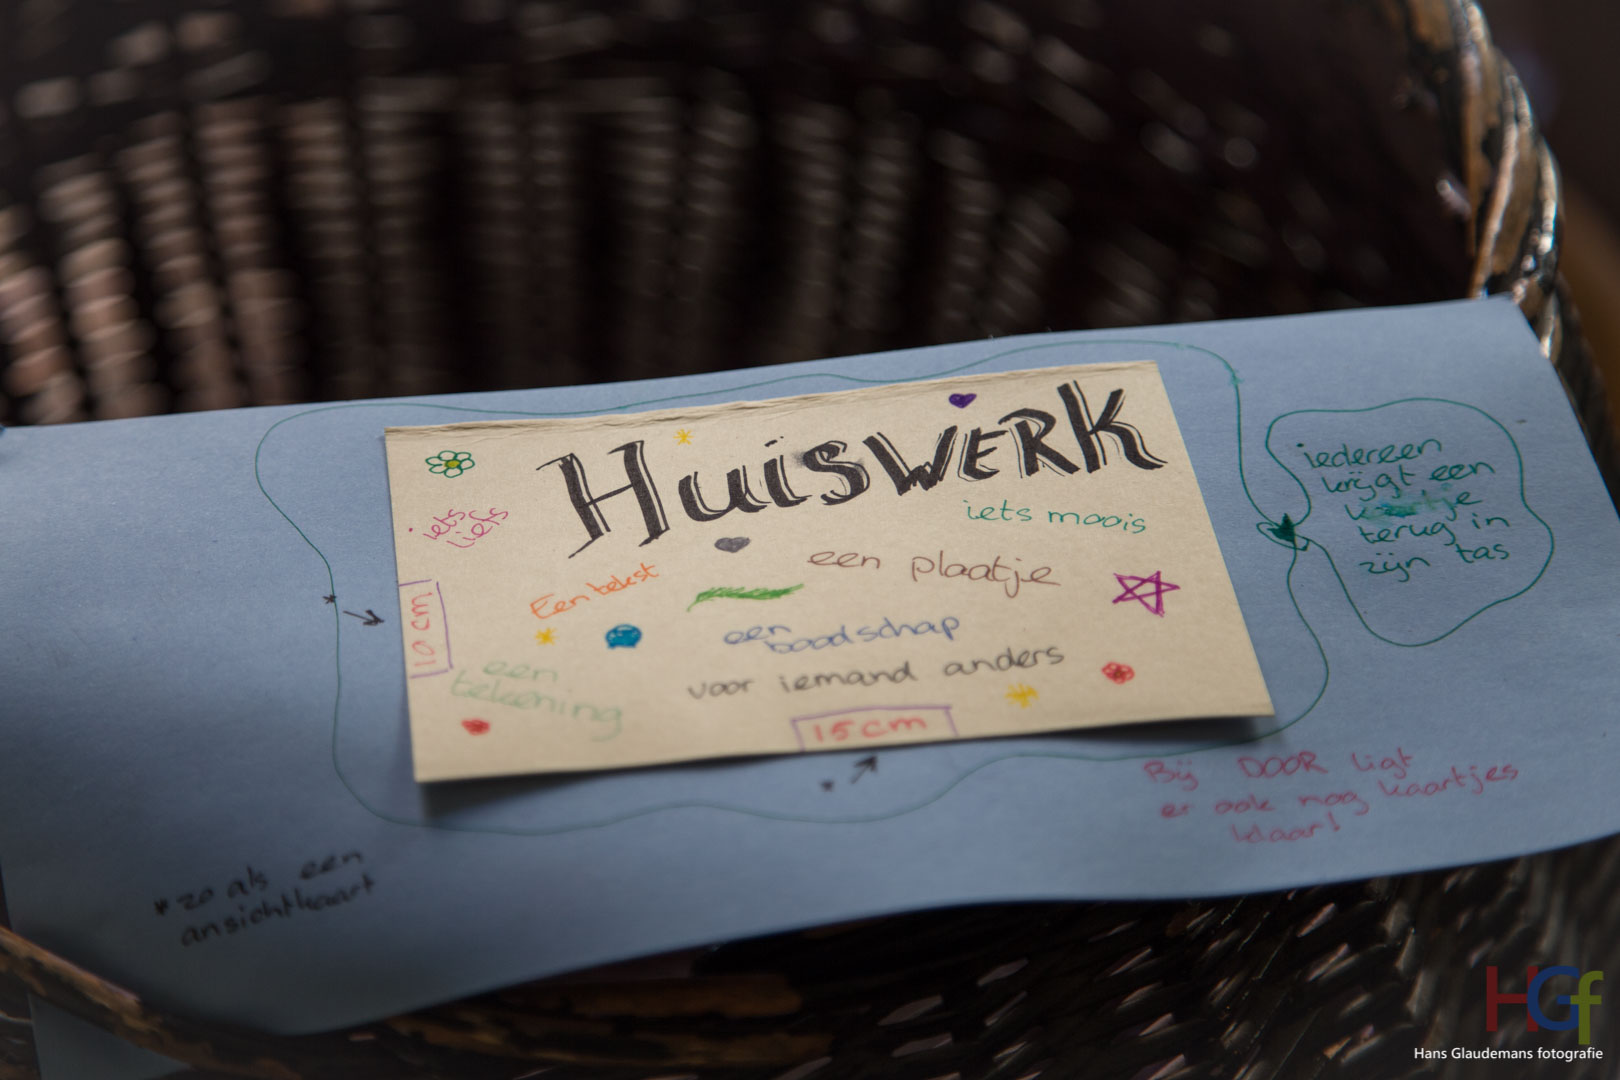 HuiswERK
iets liefs
iets moois
een plaatje
Een tekst
een boodschap
een tekening
voor iemand anders
10 cm
15 cm
iedereen
krijgt een
kaartje
terug in
zijn tas
Bij DOOR ligt
er ook nog kaartjes
klaar!
* zo als een
ansichtkaart
HGf
Hans Glaudemans fotografie